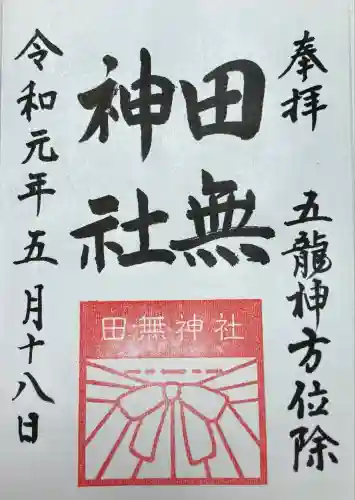 奉拝 五龍神方位除
田無
神社
田無神社
令和元年五月十八日